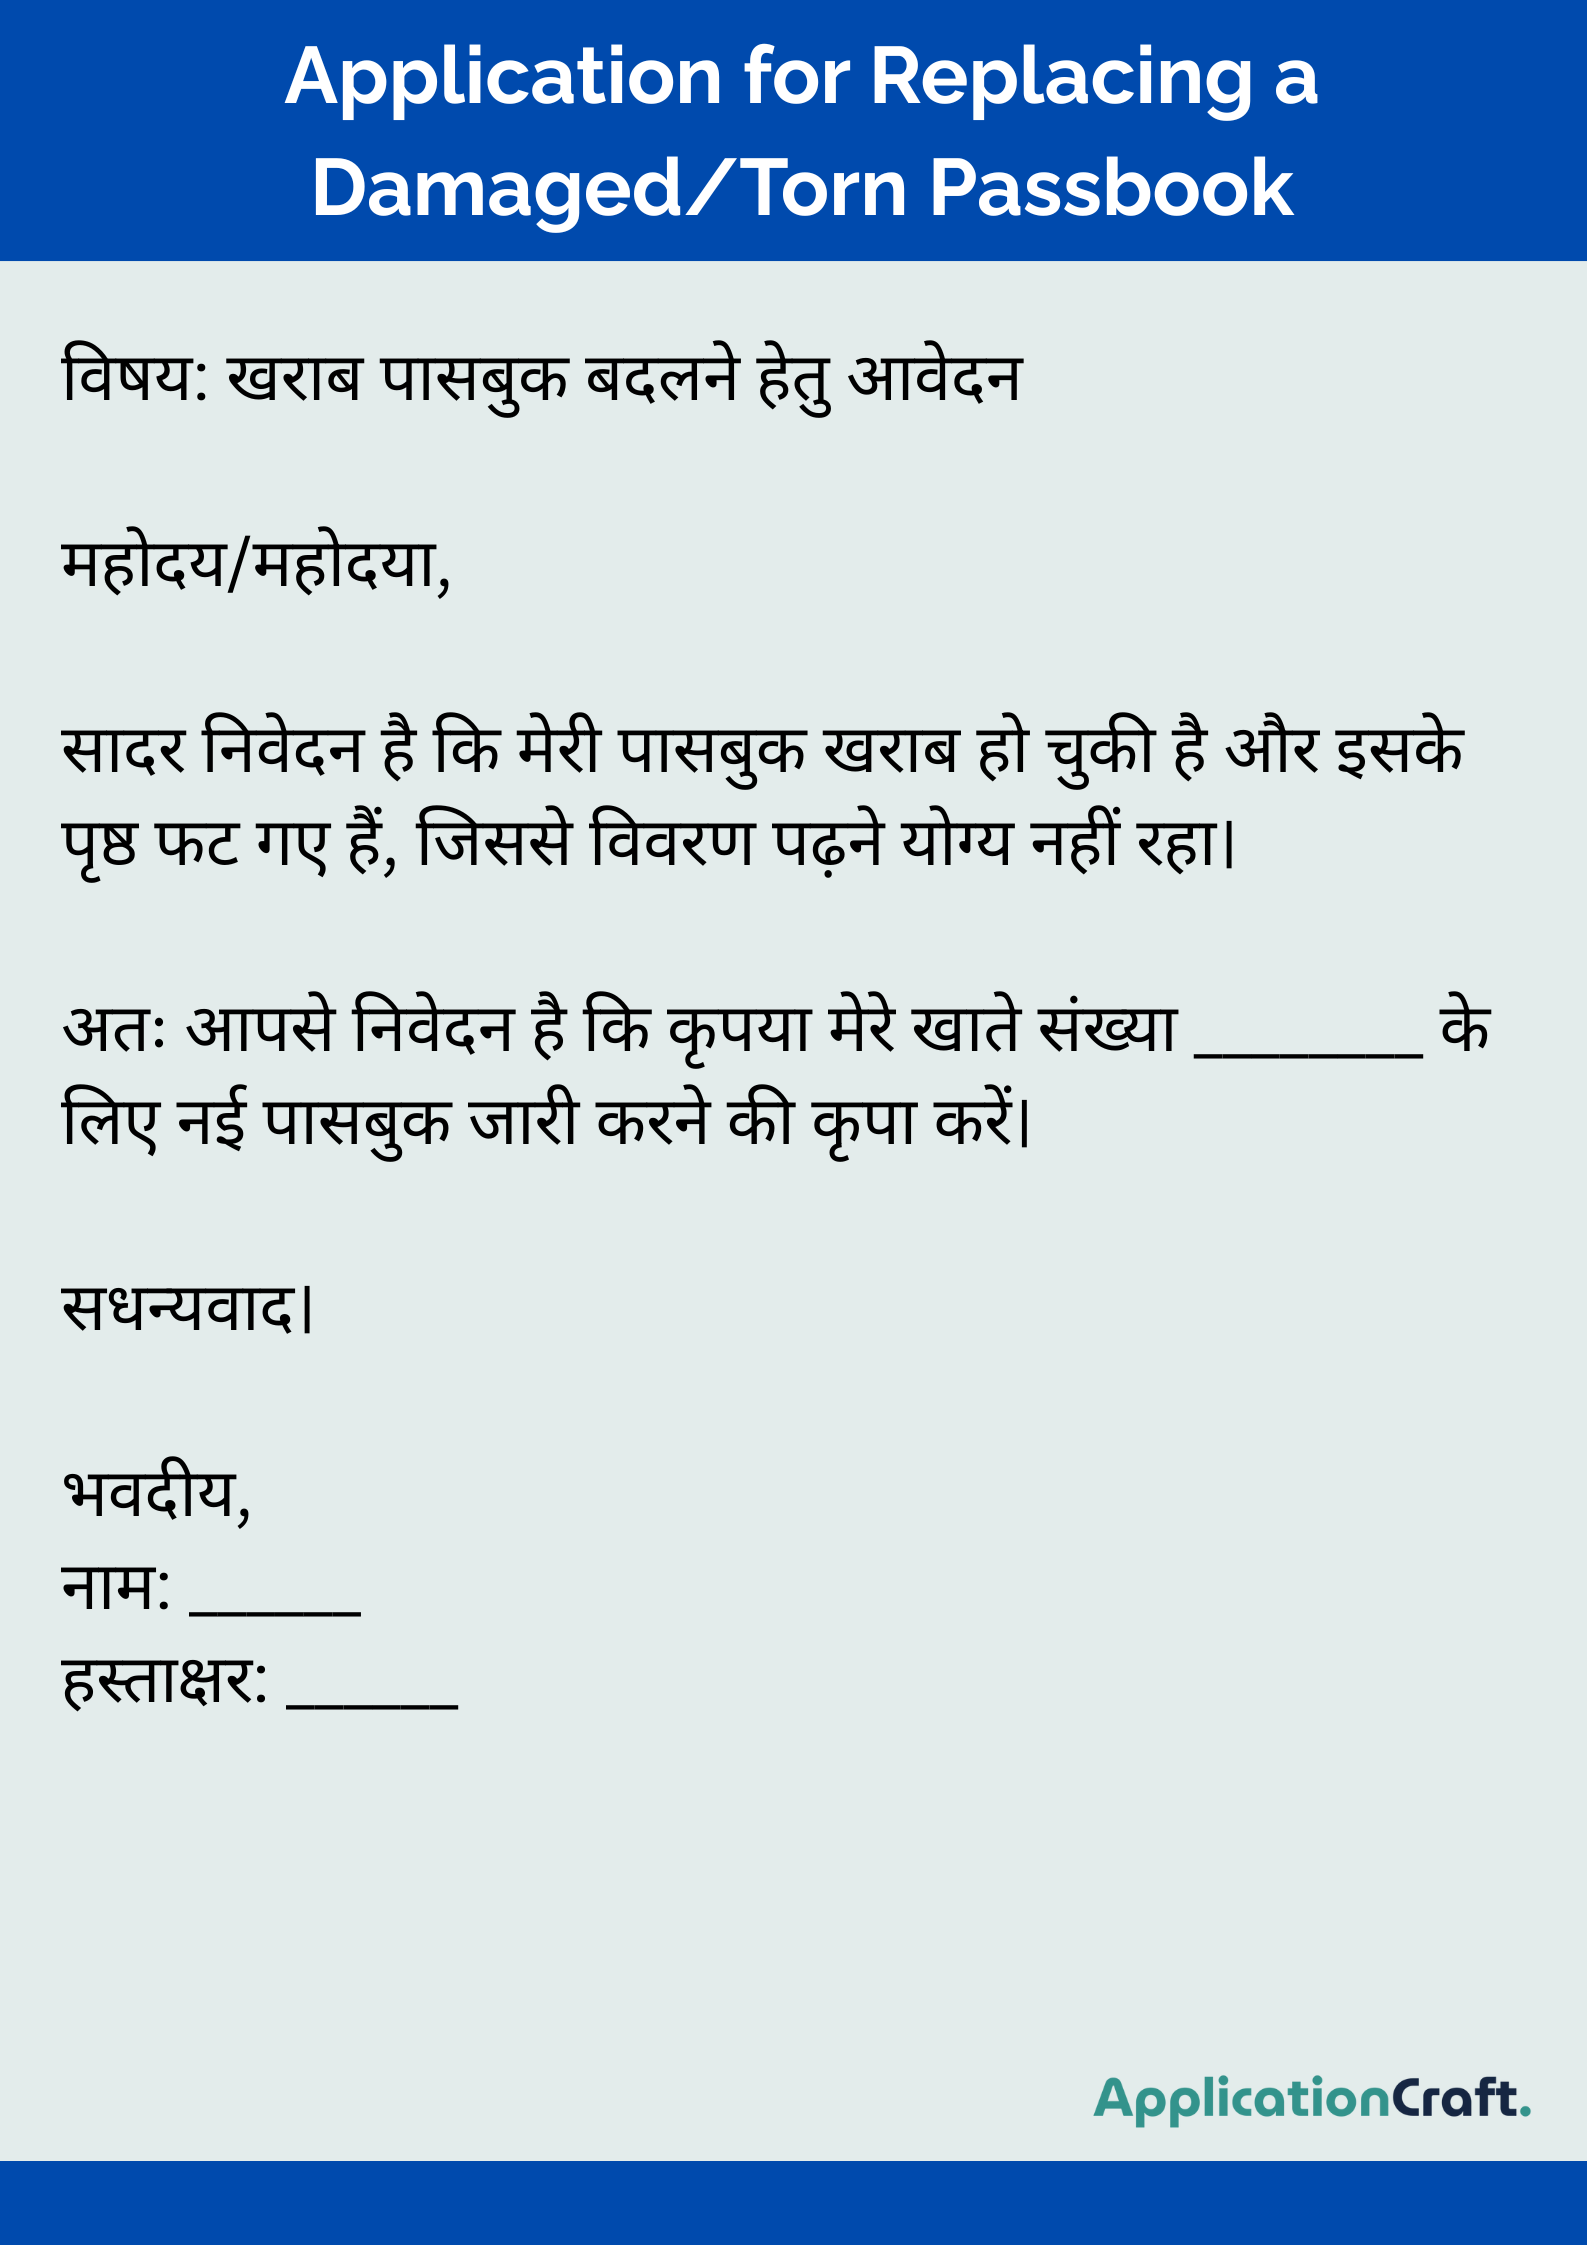 Application for Replacing a
Damaged/Torn Passbook
विषय: खराब पासबुक बदलने हेतु आवेदन
महोदय/महोदया,
सादर निवेदन है कि मेरी पासबुक खराब हो चुकी है और इसके
पृष्ठ फट गए हैं, जिससे विवरण पढ़ने योग्य नहीं रहा।
अतः आपसे निवेदन है कि कृपया मेरे खाते संख्या ________ के
लिए नई पासबुक जारी करने की कृपा करें।
सधन्यवाद।
भवदीय,
नाम: ______
हस्ताक्षर: ______
ApplicationCraft.